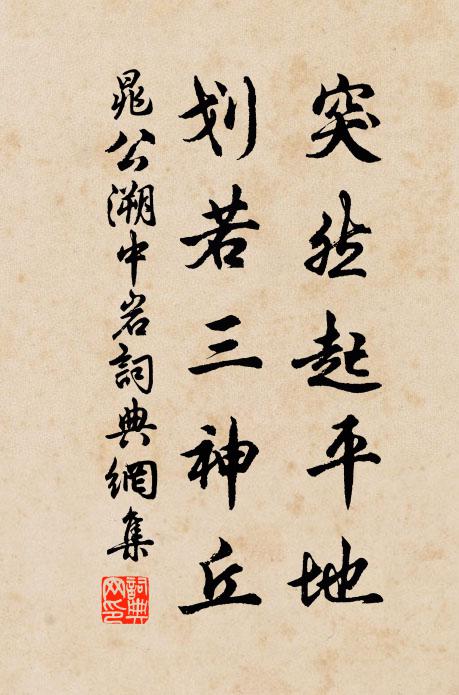 突然起平地
划若三神丘
晁公溯中岩詞典網集
詞典網印